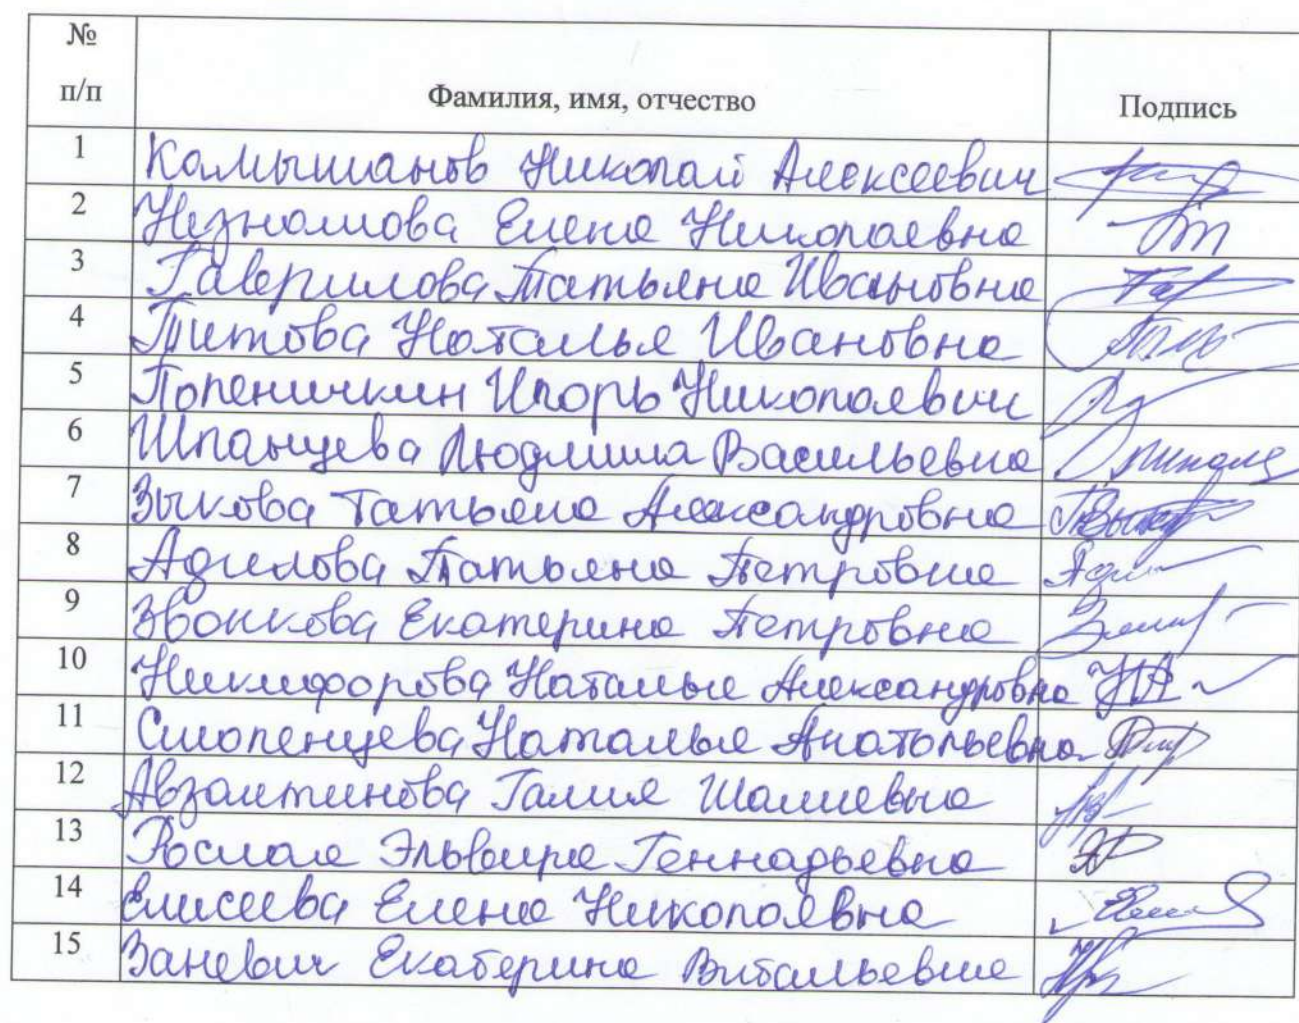 № п/п Фамилия, имя, отчество Подпись
1 Камышанов Николай Алексеевич
2 Незнамова Елена Николаевна
3 Гаврилова Татьяна Ивановна
4 Титова Наталья Ивановна
5 Попеничкин Игорь Николаевич
6 Шпанцева Людмила Васильевна
7 Зыкова Татьяна Александровна
8 Адилова Татьяна Петровна
9 Звонкова Екатерина Петровна
10 Никифорова Наталья Александровна
11 Смоленцева Наталья Анатольевна
12 Галия
13 Эльвира Геннадьевна
14 Елисеева Елена Николаевна
15 Заневич Екатерина Витальевна